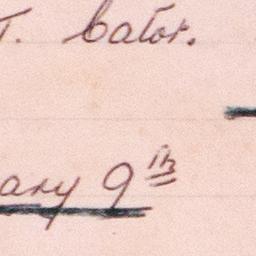 T. Cator.
ary 9th